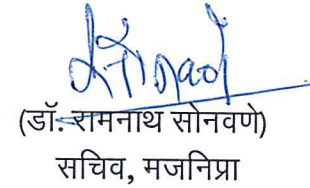 (डॉ. रामनाथ सोनवणे)
सचिव, मजनिप्रा